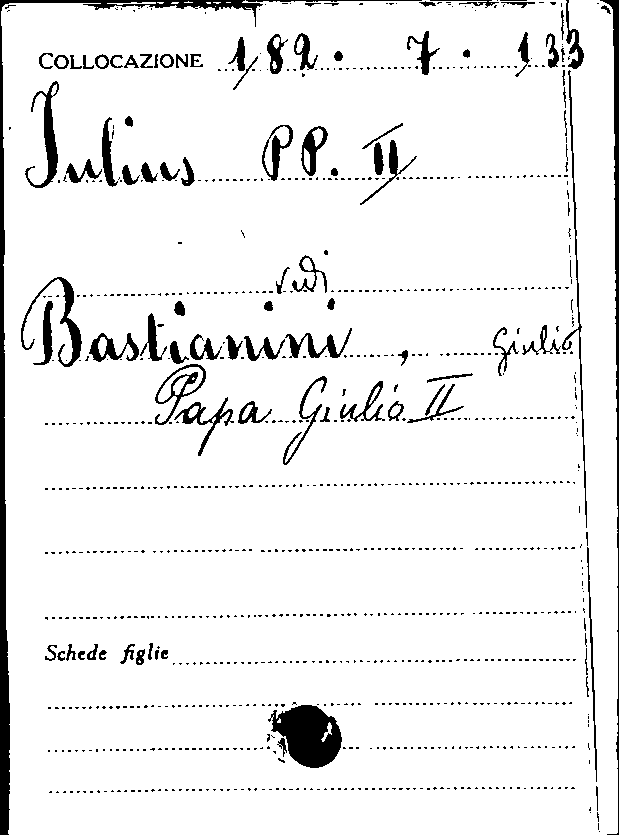 COLLOCAZIONE 182. 7. 133
Iulius PP. II
vedi
Bastianini, Giulio
Papa Giulio II
Schede figlie